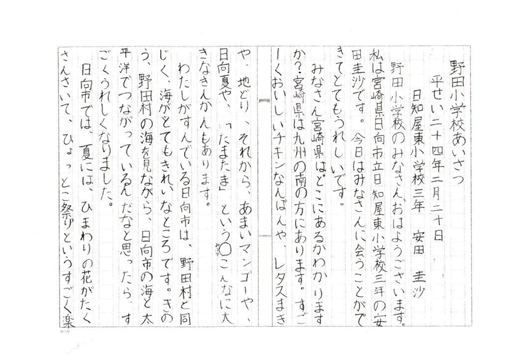 野田小学校あいさつ
平せい二十四年二月二十日
日知屋東小学校三年　安田　圭沙
野田小学校のみなさん、おはようございます。
私は宮崎県日向市立日知屋東小学校三年の安
田圭沙です。今日はみなさんに会うことがで
きてとてもうれしいです。
みなさん宮崎県はどこにあるかわかります
か？宮崎県は九州の南の方にあります。すご
ーくおいしいチキンなんばんや、レタスまき
や、地どり、それから、あまいマンゴーや、
日向夏や、「たまたま」という〇こんなに大
きなきんかんもあります。
わたしがすんでいる日向市は、野田村と同
じく、海がとてもきれいなところです。きの
う、野田村の海を見ながら、日向市の海と太
平洋でつながっているんだなと思ったら、す
ごくうれしくなりました。
日向市では、夏には、ひまわりの花がたく
さんさいて、ひょっとこ祭りというすごく楽